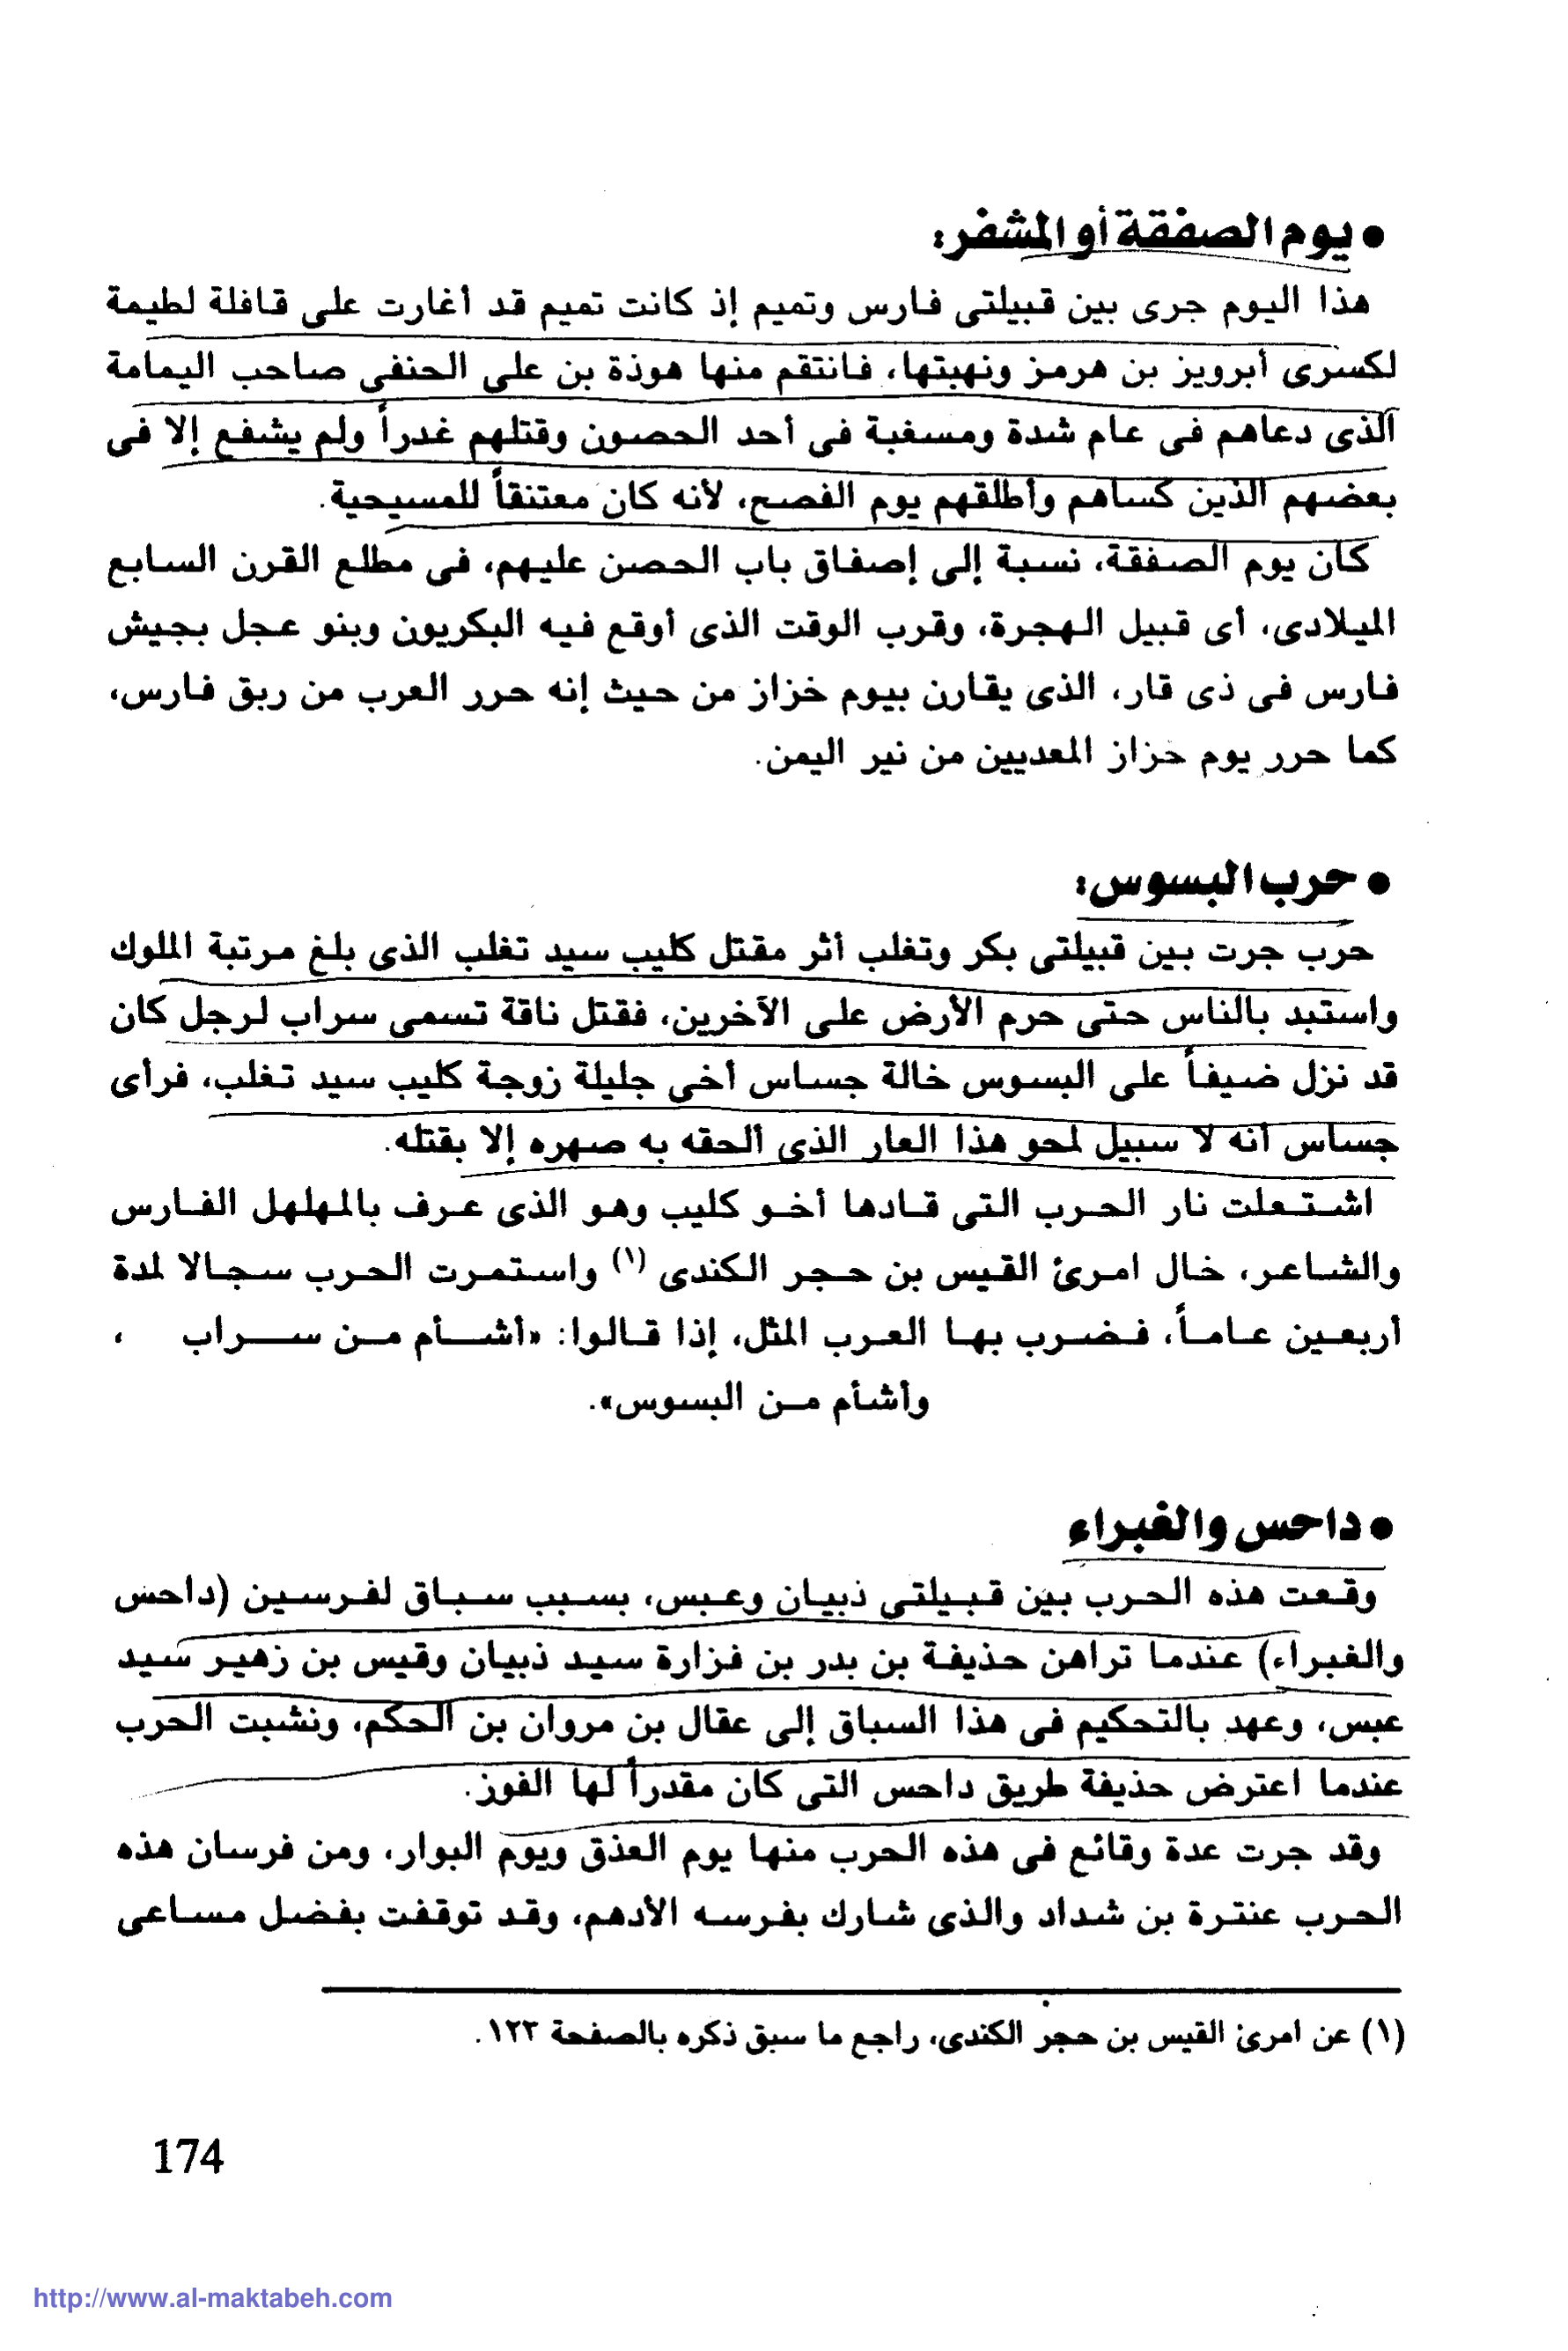 • يوم الصفقة أو المشفر:
هذا اليوم جرى بين قبيلتى فارس وتميم إذ كانت تميم قد أغارت على قافلة لطيمة
لكسرى أبرويز بن هرمز ونهبتها، فانتقم منها هوذة بن على الحنفى صاحب اليمامة
الذى دعاهم فى عام شدة ومسغبة فى أحد الحصون وقتلهم غدراً ولم يشفع إلا فى
بعضهم الذين كساهم وأطلقهم يوم الفصح، لأنه كان معتنقاً للمسيحية.
كان يوم الصفقة، نسبة إلى إصفاق باب الحصن عليهم، فى مطلع القرن السابع
الميلادى، أى قبيل الهجرة، وقرب الوقت الذى أوقع فيه البكريون وبنو عجل بجيش
فارس فى ذى قار، الذى يقارن بيوم خزاز من حيث إنه حرر العرب من ربق فارس،
كما حرر يوم خزاز المعديين من نير اليمن.
• حرب البسوس:
حرب جرت بين قبيلتى بكر وتغلب أثر مقتل كليب سيد تغلب الذى بلغ مرتبة الملوك
واستبد بالناس حتى حرم الأرض على الآخرين، فقتل ناقة تسمى سراب لرجل كان
قد نزل ضيفاً على البسوس خالة جساس أخى جليلة زوجة كليب سيد تغلب، فرأى
جساس أنه لا سبيل لمحو هذا العار الذى ألحقه به صهره إلا بقتله.
اشتعلت نار الحرب التى قادها أخو كليب وهو الذى عرف بالمهلهل الفارس
والشاعر، خال امرئ القيس بن حجر الكندى (١) واستمرت الحرب سجالا لمدة
أربعين عاماً، فضرب بها العرب المثل، إذا قالوا: «أشأم من سراب ،
وأشأم من البسوس».
• داحس والغبراء
وقعت هذه الحرب بين قبيلتى ذبيان وعبس، بسبب سباق لفرسين (داحس
والغبراء) عندما تراهن حذيفة بن بدر بن فزارة سيد ذبيان وقيس بن زهير سيد
عبس، وعهد بالتحكيم فى هذا السباق إلى عقال بن مروان بن الحكم، ونشبت الحرب
عندما اعترض حذيفة طريق داحس التى كان مقدراً لها الفوز.
وقد جرت عدة وقائع فى هذه الحرب منها يوم العذق ويوم البوار، ومن فرسان هذه
الحرب عنترة بن شداد والذى شارك بفرسه الأدهم، وقد توقفت بفضل مساعى
(١) عن امرئ القيس بن حجر الكندى، راجع ما سبق ذكره بالصفحة ١٢٢.
174
http://www.al-maktabeh.com